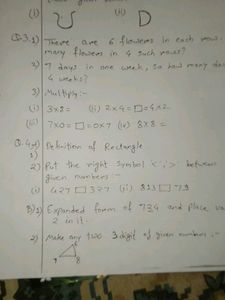 (i) (ii) D
Q.3.1) There are 6 flowers in each row.
many flowers in 4 such rows?
2) 7 days in one week, so how many
4 weeks?
3) Multiply:-
(i) 3x8= (ii) 2x4=□=4x2
(iii) 7x0=□=0x7 (iv) 8x8=
Q.4.
1) Definition of Rectangle.
2) Put the right symbol '<', '>' between
given numbers:-
(i) 427 □ 327 (ii) □
B)1) Expanded form of 734 and place
2 in it.
2) Make any two 3 digit of given numbers:-
8